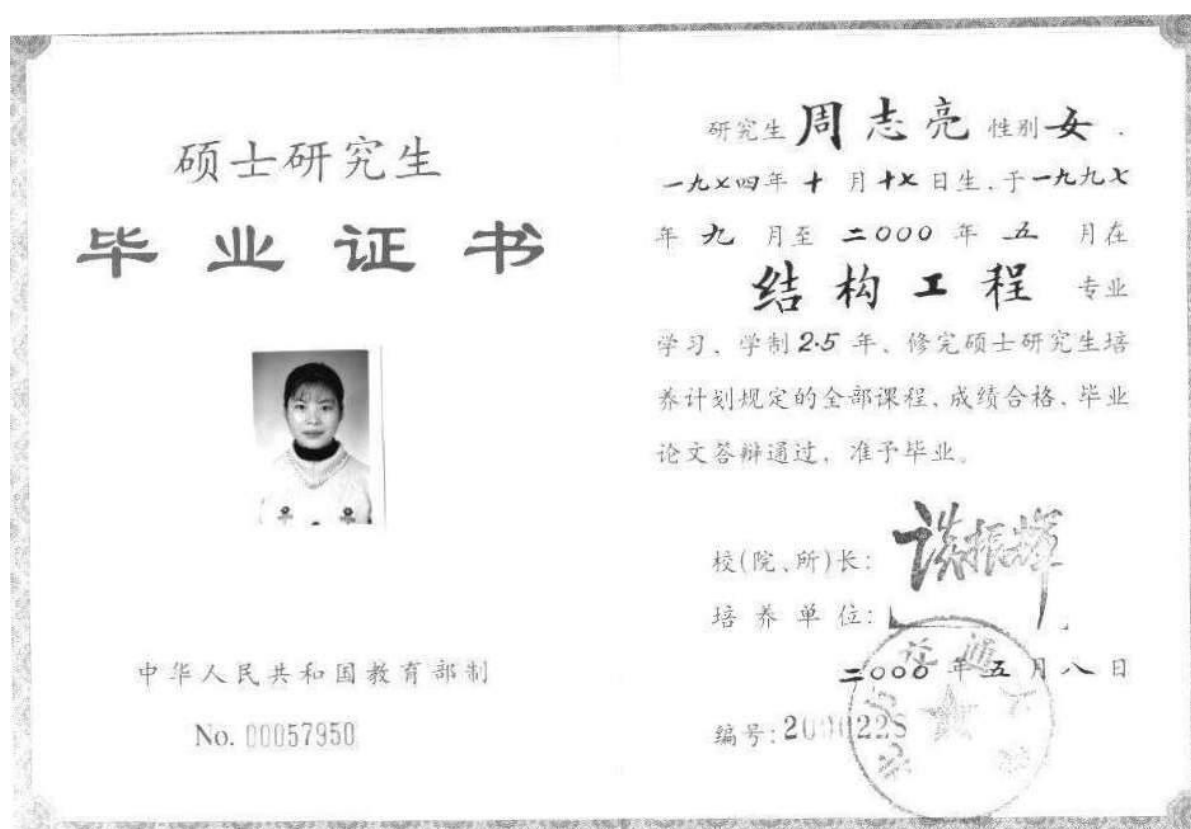 硕士研究生
毕业证书
中华人民共和国教育部制
No. 00057950
研究生 周志亮 性别 女 .
一九七四年 十 月 十七 日生、于一九九七
年 九 月至 二000 年 五 月在
结构工程 专业
学习、学制 2·5 年、修完硕士研究生培
养计划规定的全部课程、成绩合格、毕业
论文答辩通过,准予毕业。
校(院、所)长: 谈振辉
培养单位:
二000年五月八日
编号:
北方交通大学